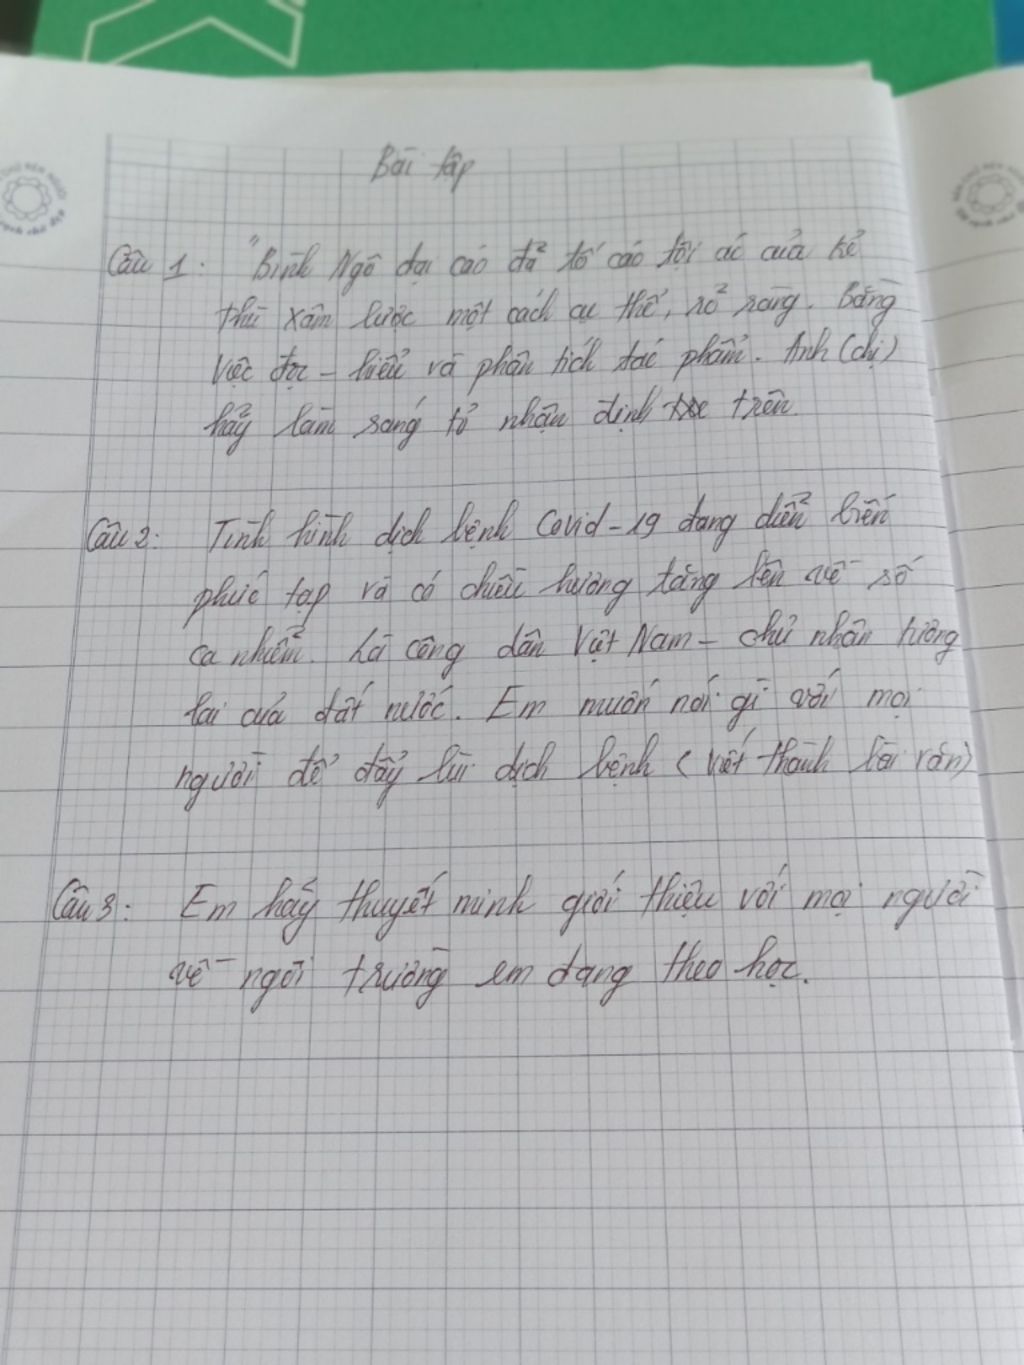 Bài tập
Câu 1: "Bình Ngô đại cáo đã tố cáo tội ác của kẻ
thù xâm lược một cách cụ thể, rõ ràng. Bằng
việc đọc - hiểu và phân tích tác phẩm. Anh (chị)
hãy làm sáng tỏ nhận định trên
Câu 2: Tình hình dịch bệnh Covid-19 đang diễn biến
phức tạp và có chiều hướng tăng lên về số
ca nhiễm. Là công dân Việt Nam - chủ nhân tương
lai của đất nước. Em muốn nói gì với mọi
người để đẩy lùi dịch bệnh (viết thành bài văn)
Câu 3: Em hãy thuyết minh giới thiệu với mọi người
về ngôi trường em đang theo học.